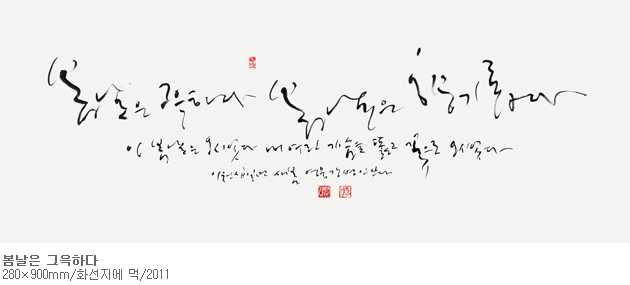 봄날은 그윽하다 봄날은 향기롭다
이 봄날은 오시었다 내 여린 가슴을 뚫고 꽃으로 오시었다
이천십일년 새봄
봄날은 그윽하다
280×900mm/화선지에 먹/2011